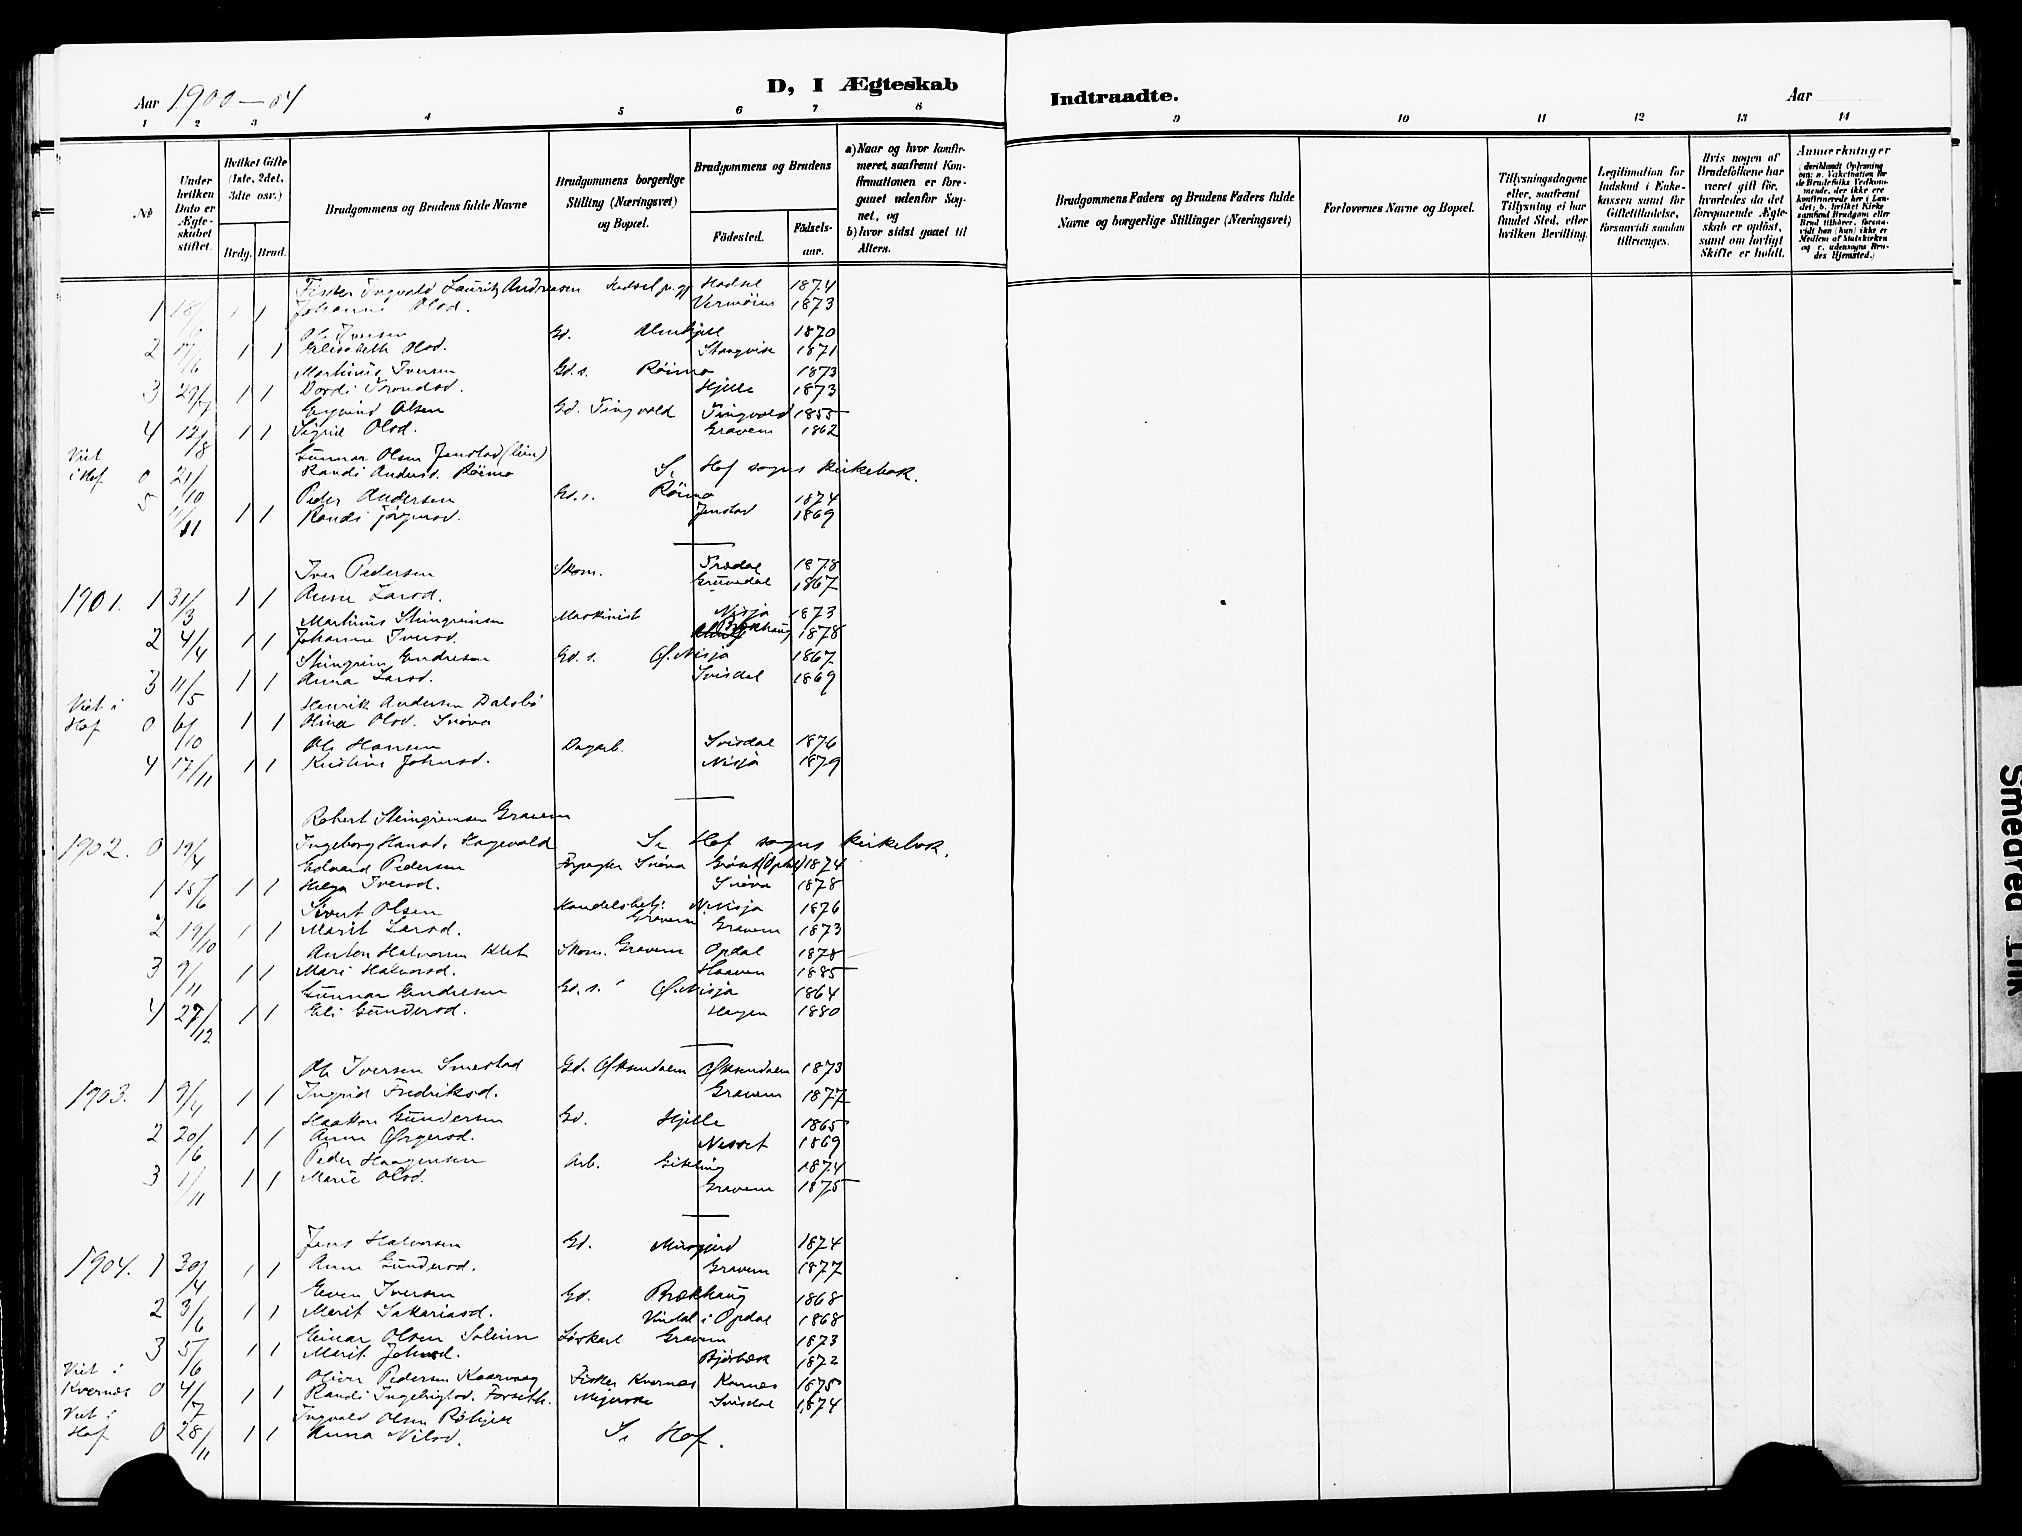 Aar 1900–04
D, I Ægteskab
Indtraadte.
Aar
1 2 3 4 5 6 7 8
9 10 11 12 13 14
No
Under hvilken Dato er Ægteskabet stiftet.
Hvilket Gifte (1ste, 2det, 3dte osv.)
Brdg. Brud.
Brudgommens og Brudens fulde Navne
Brudgommens borgerlige Stilling (Næringsvei) og Bopæl.
Brudgommens og Brudens
Födested. Födselsaar.
a) Naar og hvor konfirmeret, saafremt Konfirmationen er foregaaet udenfor Sognet, og
b) hvor sidst gaaet til Alters.
Brudgommens Faders og Brudens Faders fulde Navne og borgerlige Stillinger (Næringsvei)
Forlovernes Navne og Bopæl.
Tillysningsdagene eller, saafremt Tillysning ei har fundet Sted, efter hvilken Bevilling.
Legitimation for Indskud i Enkekassen samt for Giftetilladelse, forsaavidt saadan tiltrænges.
Hvis nogen af Brudefolkene har været gift för, hvorledes da det foregaaende Ægteskab er oplöst, samt om lovligt Skifte er holdt.
Anmærkninger
Fisker Ingvald Lauritz Andreasen Hadsel pr.gj. Hadsel 1874
1 18/ 1 1 Johanne Olsd. 1873
Ole Iversen Gd. Almskjell 1870
2 17/6 1 1 Elisabeth Olsd. Stangvik 1871
Martinus Iversen Gd.s. Röimo 1873
3 29/7 1 1 Dordi Trondsd. Hjelle 1873
Eyvind Olsen Gd. Tingvold Tingvold 1855
4 12/8 1 1 Sigrid Olsd. Gravem 1862
Viet Gunnar Olsen Jenstad (lien)
i Hof 0 21/10 Randi Andersd. Röimo Se Hof sogns kirkebok.
5 Peder Andersen Gd.s. Röimo 1874
/11 1 1 Randi Jörgensd. Jenstad 1869
Iver Pedersen Skom. Trædal 1878
1901. 1 31/3 1 1 Anne Larsd. Gruvedal 1867
Martinus Steingrimsen Maskinist Nisja 1873
2 4/4 1 1 Johanne Iversd. Brækhaug 1878
Steingrim Endresen Gd.s. Ø.Nisja 1867
3 11/5 1 1 Anna Larsd. Svisdal 1869
Viet i Henrik Andersen Dalsbö
Hof 0 6/10 1 1 Olina Olsd. Snöva
Ole Hansen Dagarb. Svisdal 1876
4 17/11 1 1 Kristine Johnsd. Nisja 1879
Robert Steingrimsen Gravem
1902. 0 19/4 Ingeborg Hansd. Hagevold Se Hof sogns kirkebok.
Edvard Pedersen Forpagter Snöva Gröset (Opdal) 1874
1 15/6 1 1 Helga Iversd. Snöva 1878
Sivert Olsen Handelsbetj. N.Nisja 1876
2 19/10 1 1 Marit Larsd. Gravem Gravem 1873
Anton Halvorsen Klet Skom. Gravem Opdal 1878
3 9/11 1 1 Mari Halvorsd. Haaven 1885
Gunnar Endresen Gd.s. Ø.Nisja 1864
4 27/12 1 1 Eli Gundersd. Hagen 1880
Ole Iversen Smestad Gd. Øksendalen Øksendalen 1873
1903. 1 9/4 1 1 Ingrid Fredriksd. Gravem 1877
Haakon Gundersen Gd. Hjelle 1865
2 20/6 1 1 Anne Ørgersd. Nesset 1869
Peder Haagensen Arb. Gikling 1874
3 1/11 1 1 Marie Olsd. Gravem 1875
Jens Halvorsen Gd. Musgjerd 1874
1904. 1 30/4 1 1 Anne Gundersd. Gravem 1877
Even Iversen Gd. Brækhaug 1868
2 3/6 1 1 Marit Sakariasd. Vindal i Opdal 1868
Einar Olsen Soleim Löskarl Gravem 1873
3 5/6 1 1 Marit Johnsd. Bjørbæk 1872
Viet i Oliver Pedersen Kaarvaag Fisker Kvernæs Kvernæs 1875
Kvernæs 0 4/7 1 1 Randi Ingebrigtsd. Forseth. Mejerske Svisdal 1874
Viet i Ingvald Olsen Röhjell
Hof 0 28/11 1 1 Anna Nilsd. Se Hof.
Smeared Ink